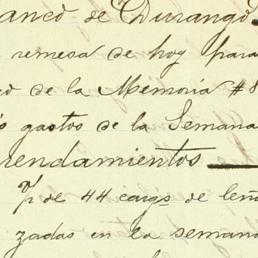 anco de Durango
remesa de hoy para
o de la Memoria #8
s gastos de la Semana
rendamientos
Yp de 44 cargs de leña
zadas en la semana